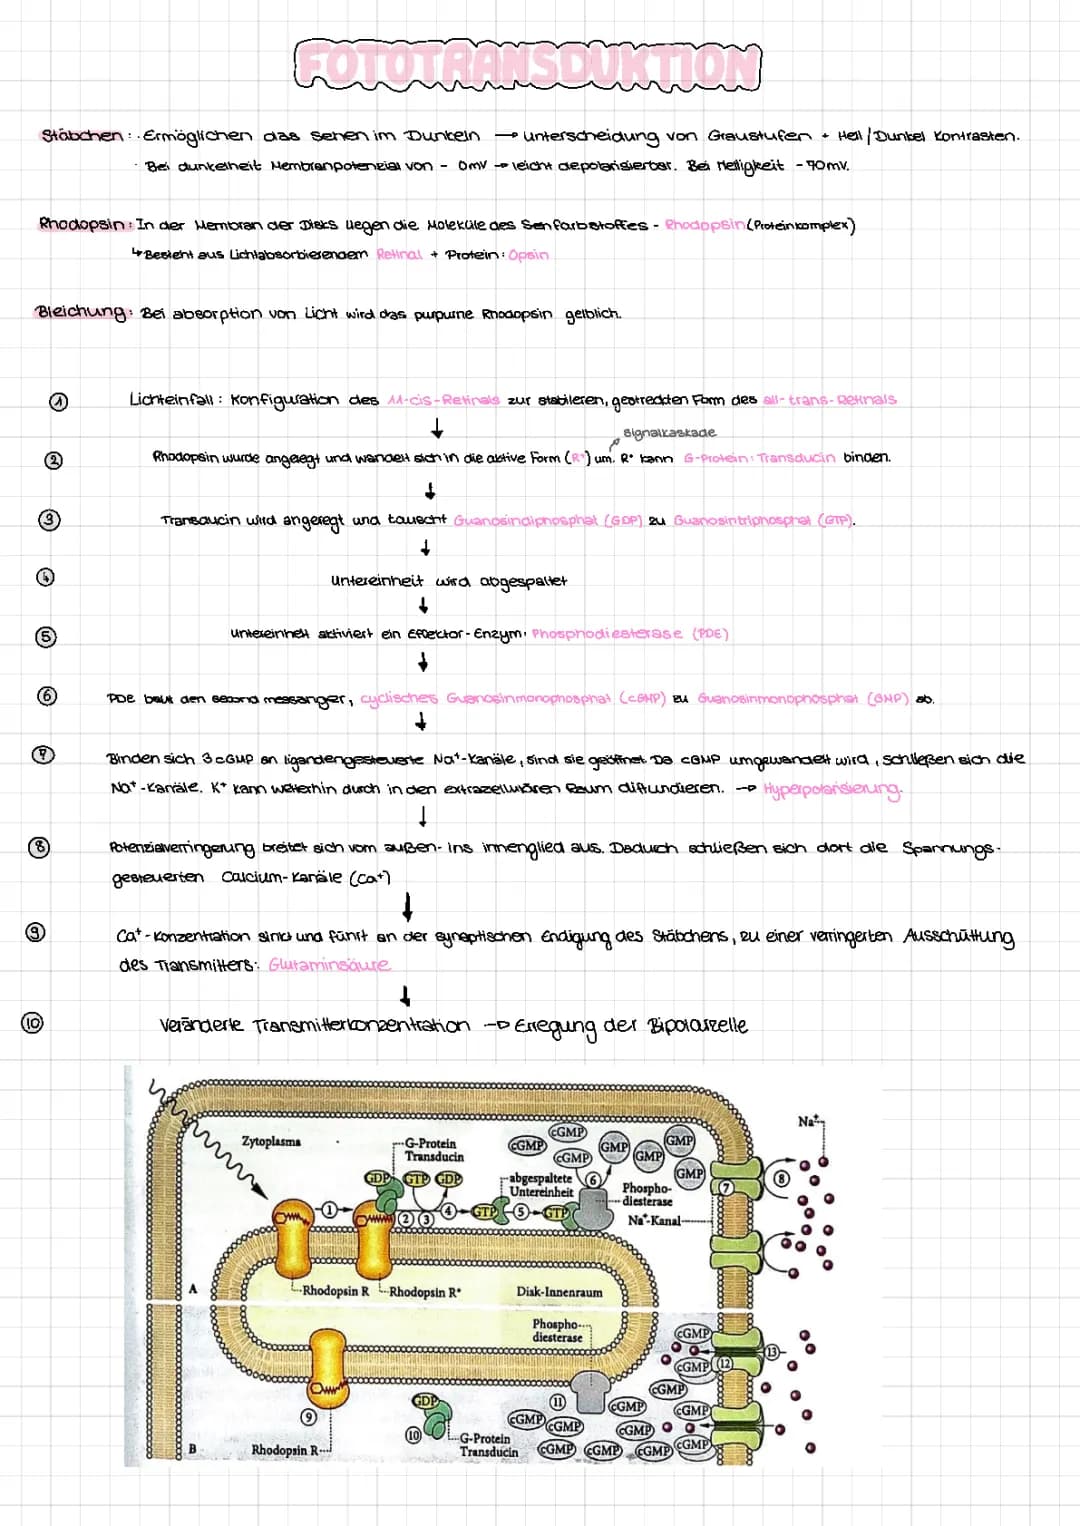 FOTOTRANSDUKTION
Stäbchen: · Ermöglichen das sehen im Dunkeln → unterscheidung von Graustufen + Hell/Dunkel Kontrasten.
· Bei dunkelheit Membranpotenzial von - 0mV → leicht depolarisierbar. Bei Helligkeit -70mV.
Rhodopsin: In der Membran der Disks liegen die Moleküle des Sehfarbstoffes - Rhodopsin (Proteinkomplex)
↳ Besteht aus Lichtabsorbierendem Retinal + Protein: Opsin
Bleichung: Bei absorption von Licht wird das purpurne Rhodopsin gelblich.
① Lichteinfall: Konfiguration des 11-cis-Retinals zur stabileren, gestreckten Form des all-trans-Retinals
↓
Signalkaskade
② Rhodopsin wurde angeregt und wandelt sich in die aktive Form (R*) um. R* kann G-Protein: Transducin binden.
↓
③ Transducin wird angeregt und tauscht Guanosindiphosphat (GDP) zu Guanosintriphosphat (GTP).
↓
④ Untereinheit wird abgespaltet
↓
⑤ untereinheit aktiviert ein Effektor-Enzym: Phosphodiesterase (PDE)
↓
⑥ PDE baut den second messanger, cyclisches Guanosinmonophosphat (cGMP) zu Guanosinmonophosphat (GMP) ab.
↓
⑦ Binden sich 3 cGMP an ligandengesteuerte Na⁺-Kanäle, sind sie geöffnet. Da cGMP umgewandelt wird, schließen sich die
Na⁺-Kanäle. K⁺ kann weiterhin durch in den extrazellulären Raum diffundieren. → Hyperpolarisierung.
↓
⑧ Potenzialverringerung breitet sich vom außen- ins innenglied aus. Dadurch schließen sich dort die Spannungs-
gesteuerten Calcium-Kanäle (Ca⁺)
↓
⑨ Ca⁺-Konzentration sinkt und führt an der synaptischen Endigung des Stäbchens, zu einer verringerten Ausschüttung
des Transmitters: Glutaminsäure
↓
⑩ Veränderte Transmitterkonzentration → Erregung der Bipolarzelle
Na⁺
Zytoplasma
G-Protein
Transducin
cGMP
cGMP
cGMP
GMP
GMP
GMP
GMP
GDP
GTP
GDP
abgespaltete
Untereinheit
6
Phospho-
diesterase
Na⁺-Kanal
7
8
1
2
3
4
GTP
5
GTP
A
Rhodopsin R
Rhodopsin R*
Disk-Innenraum
Phospho-
diesterase
cGMP
cGMP
12
13
cGMP
GDP
11
cGMP
cGMP
9
10
cGMP
cGMP
cGMP
B
Rhodopsin R
G-Protein
Transducin
cGMP
cGMP
cGMP
cGMP